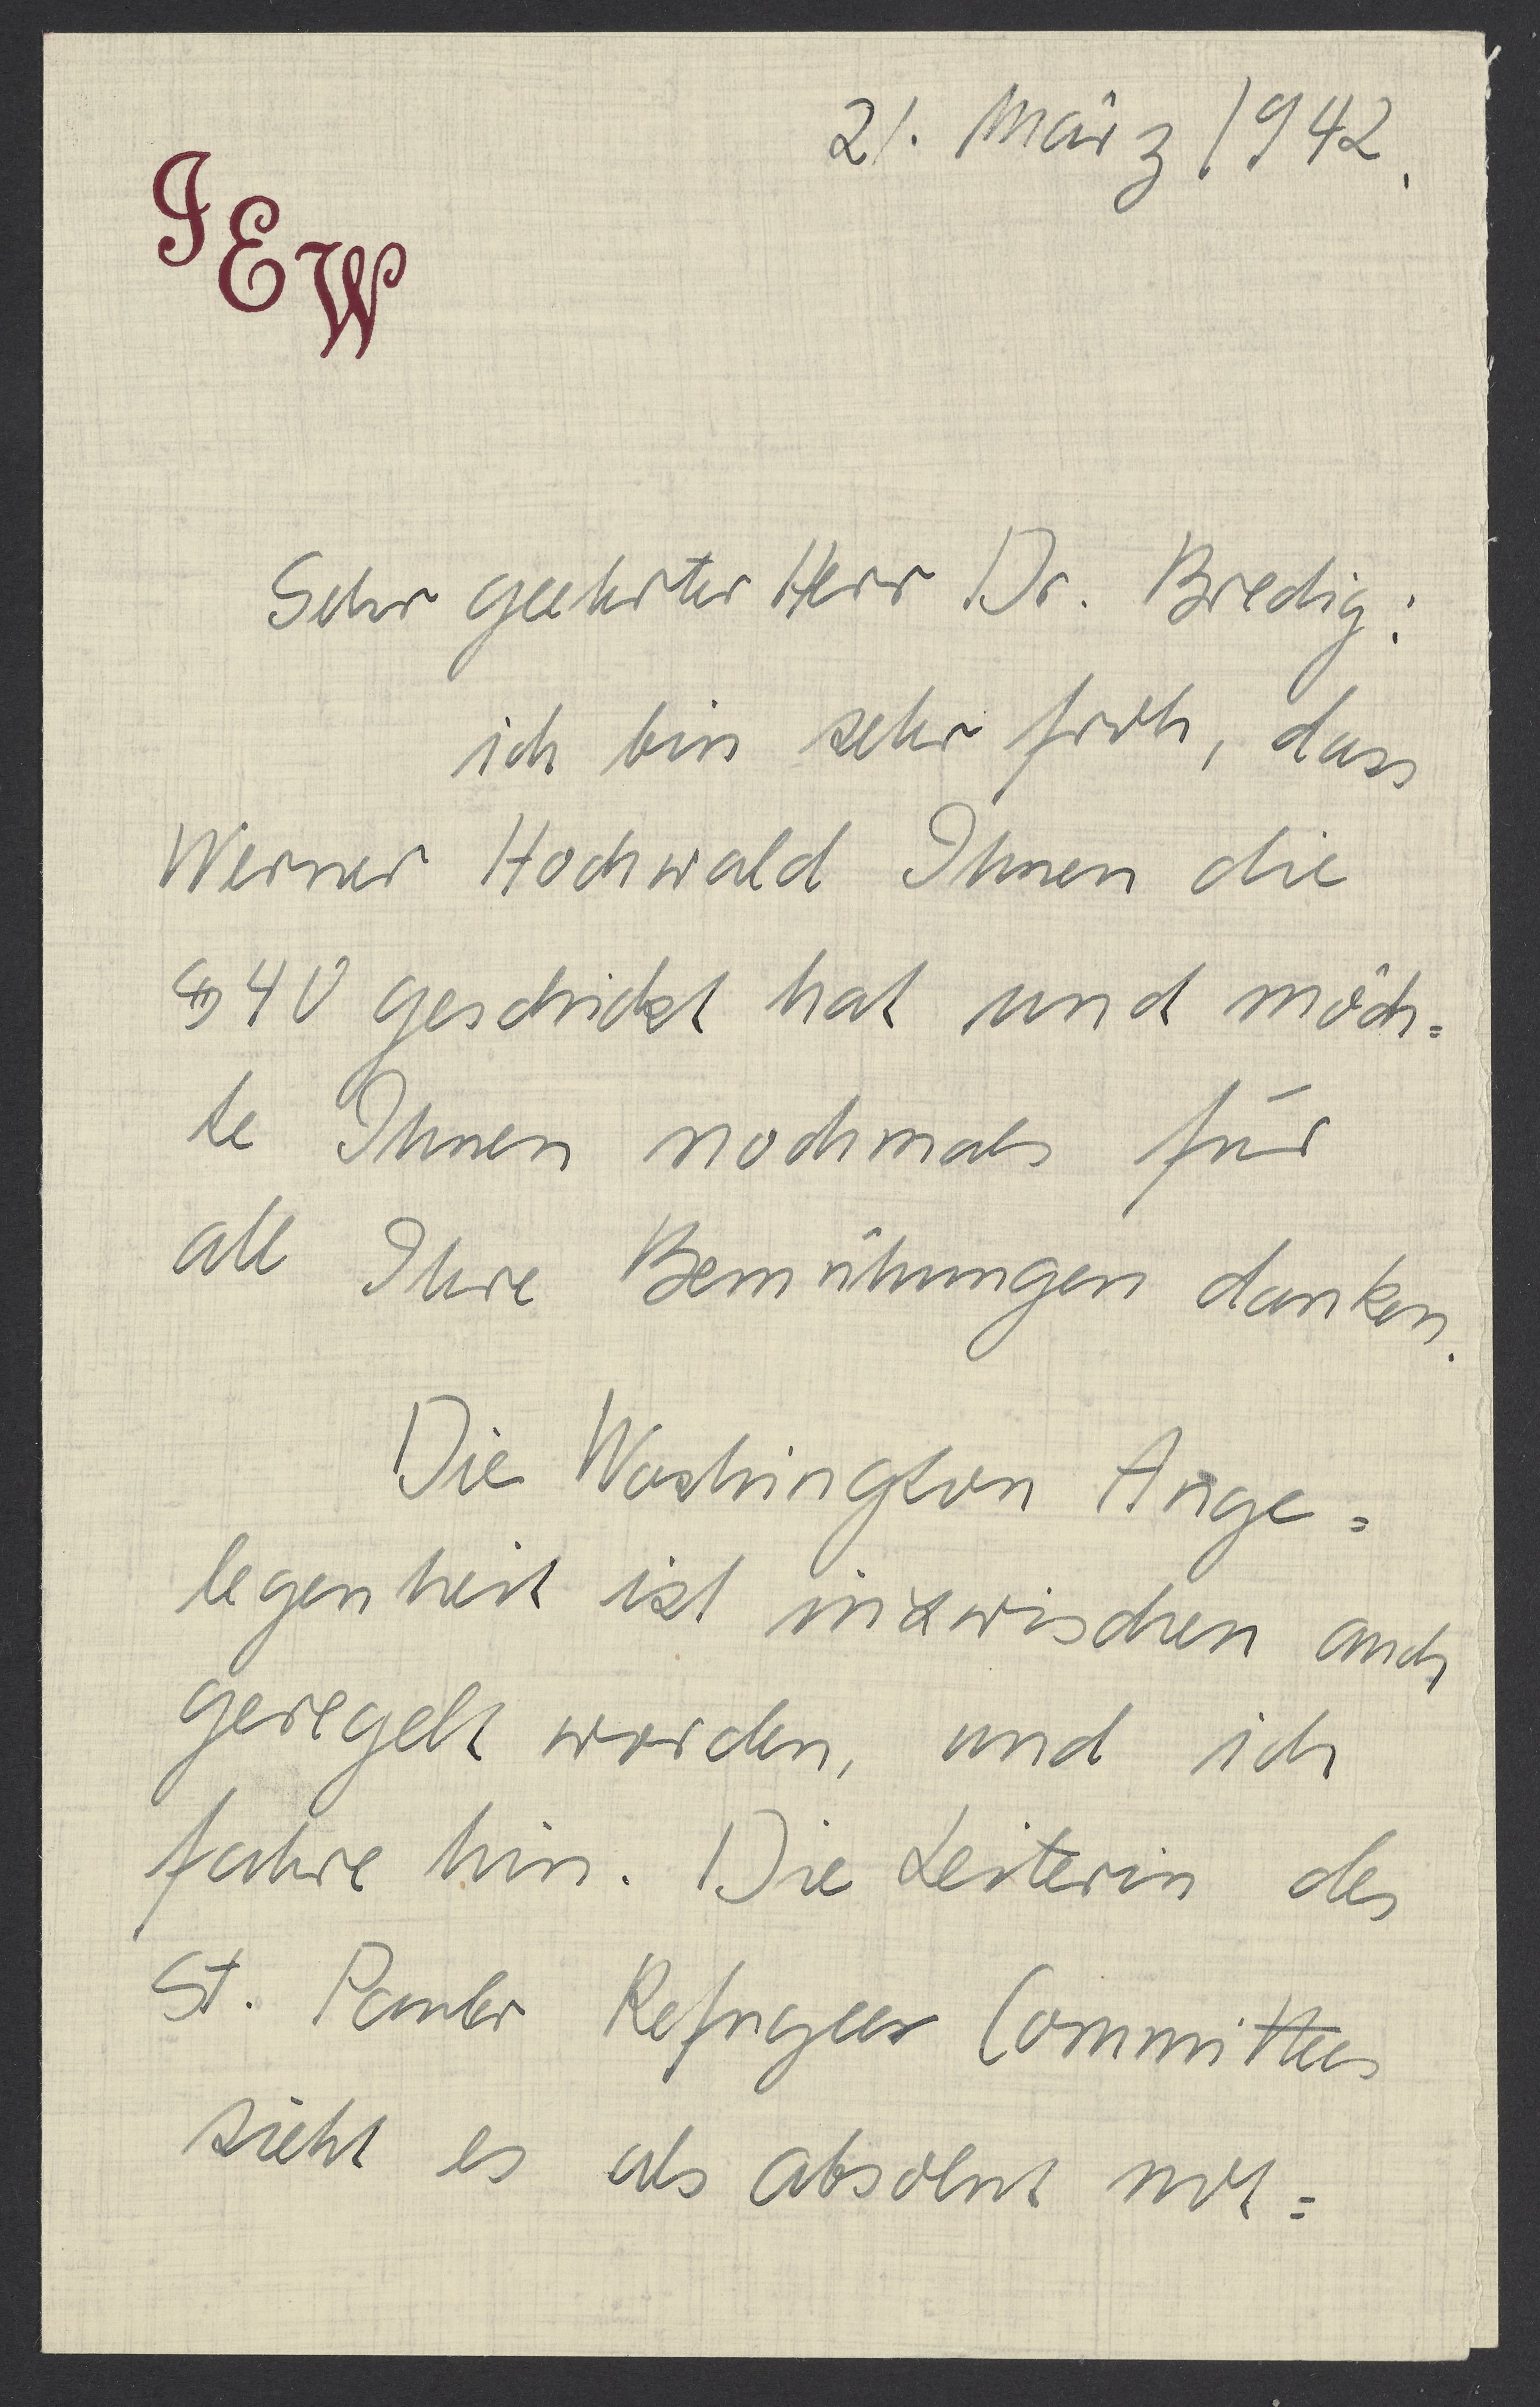 21. März 1942.
IEW
Sehr geehrter Herr Dr. Bredig:
ich bin sehr froh, dass
Werner Hochwald Ihnen die
$40 geschickt hat und möch=
te Ihnen nochmals für
all Ihre Bemühungen danken.
Die Washington Ange=
legenheit ist inzwischen auch
geregelt worden, und ich
fahre hin. Die Leiterin des
St. Pauler Refugee Committees
sieht es als absolut not=